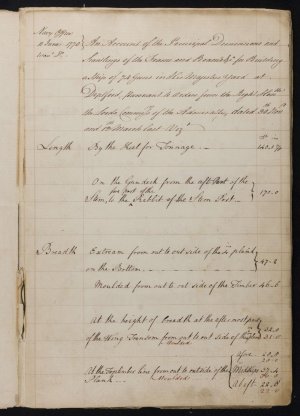 Navy Office
An Account of the Principal Dimensions and
Scantlings of the Frame and for Building
a Ship of 74 Guns in His Majestys Yard at
Deptford, Pursuant to Orders from the Right Honble
the Lords Commrs of the Admiralty dated
March last Vizt
Length By the Keel for Tonnage
On the Gundeck from the aft Part of the
fore part of the
Stem, to the Rabbit of the Stern Post
Breadth Extream from out to out side of the plank
on the Bottom 47-2
Moulded from out to out side of the Timber 46-6
At the height of Breadth at the aftermost part
of the Wing Transom from out to out side of the
Moulded
At the Toptimber line from out to outside of the Midships
Plank Moulded abaft 22.8
22.0